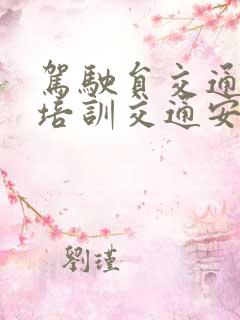 駕駛負交通
培訓交通安
劉瑾